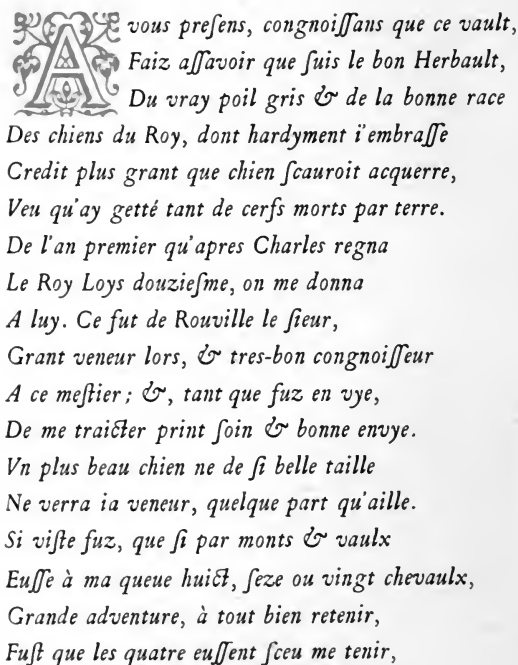 A vous preſens, congnoiſſans que ce vault,
Faiz aſſavoir que ſuis le bon Herbault,
Du vray poil gris & de la bonne race
Des chiens du Roy, dont hardyment i'embraſſe
Credit plus grant que chien ſcauroit acquerre,
Veu qu'ay getté tant de cerfs morts par terre.
De l'an premier qu'apres Charles regna
Le Roy Loys douzieſme, on me donna
A luy. Ce fut de Rouville le ſieur,
Grant veneur lors, & tres-bon congnoiſſeur
A ce meſtier; &, tant que fuz en vye,
De me traicter print ſoin & bonne envye.
Vn plus beau chien ne de ſi belle taille
Ne verra ia veneur, quelque part qu'aille.
Si viſte fuz, que ſi par monts & vaulx
Euſſe à ma queue huict, ſeze ou vingt chevaulx,
Grande adventure, à tout bien retenir,
Fuſt que les quatre euſſent ſceu me tenir,